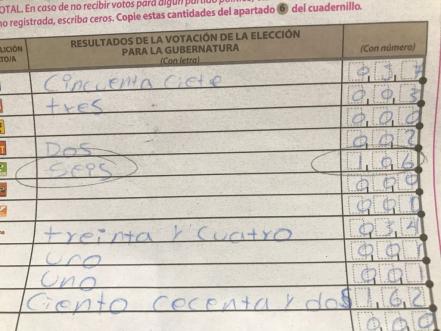 TOTAL. En caso de no recibir votos para algún
no registrada, escriba ceros. Copie estas cantidades del apartado 6 del cuadernillo.
RESULTADOS DE LA VOTACIÓN DE LA ELECCIÓN
PARA LA GUBERNATURA
(Con letra)
(Con número)
Cincuenta ciete 0 3 7
tres 0 0 3
0 0 0
Dos 0 0 2
Seps 1 0 6
0 0 0
0 0 1
treinta y cuatro 0 3 4
uno 0 0 1
uno 0 0 1
Ciento cecenta y dos 1 6 2
0 0 0